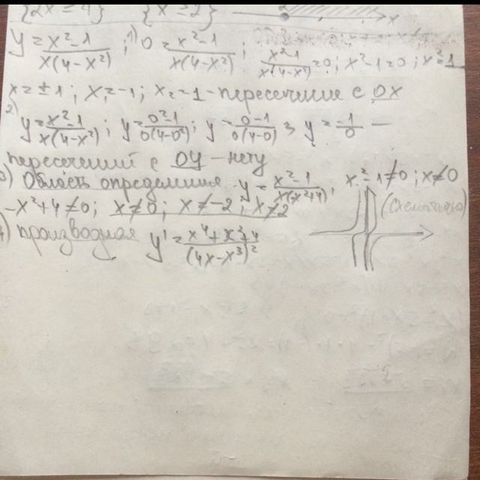 {2x = 4} {x = 2} x
y = x²-1 / x(4-x²) ; 1) 0 = x²-1 / x(4-x²) ; x²-1 / x(4-x²) = 0 ; x²-1=0 ; x²=1
x = ±1 ; x₁=-1 ; x₂=1 - пересечение с OX
2) y = x²-1 / x(4-x²) ; y = 0²-1 / 0(4-0²) ; y = 0-1 / 0(4-0) ; y = -1/0 —
пересечений с OY - нету
) Область определения y = x²-1 / x(-x²+4) ; x²-1≠0 ; x≠0
-x²+4≠0 ; x≠0 ; x≠-2 ; x≠2
) производная y' = x⁴+x²+4 / (4x-x³)²